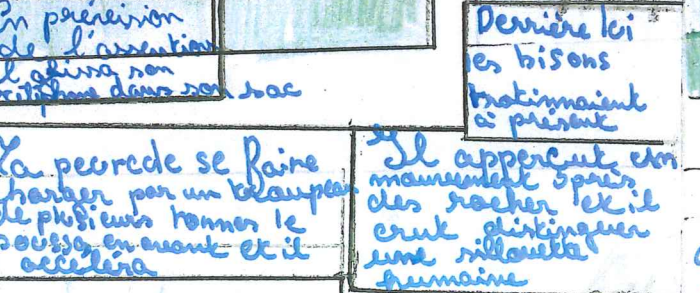 En prévision
de l'assention
il glissa son
téléphone dans son sac
Derrière lui
les bisons
trotinnaient
à présent
La peur de se faire
charger par un troupeau
de plusieurs tonnes le
poussa en avant et il
accéléra
Il apperçut un
mouvement après
des rocher et il
crut distinguer
une sillouette
humaine